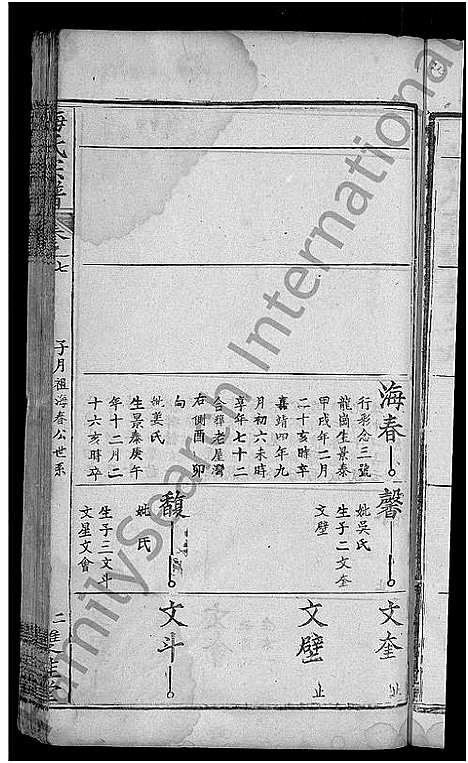 海春
行彩念三號
龍崗生景泰
甲戌年二月
二十亥時卒
嘉靖四年九
月初六未時
享年七十二
合葬老屋灣
右側酉卯
向
妣姜氏
生景泰庚午
年十二月二
十六亥時卒
馨
妣吳氏
生子二文奎
文壁
馥
妣 氏
生子三文斗
文星文會
文奎
止
文壁
止
文斗
氏宗譜
卷之七
子月祖海春公世系
二
FamilySearch International